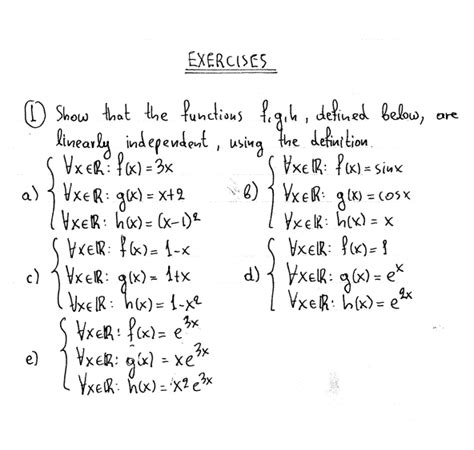 EXERCISES
① Show that the functions f,g,h, defined below, are
linearly independent, using the definition.
a) { ∀x∈ℝ: f(x) = 3x
∀x∈ℝ: g(x) = x+2
∀x∈ℝ: h(x) = (x-1)²
b) { ∀x∈ℝ: f(x) = sinx
∀x∈ℝ: g(x) = cosx
∀x∈ℝ: h(x) = x
c) { ∀x∈ℝ: f(x) = 1-x
∀x∈ℝ: g(x) = 1+x
∀x∈ℝ: h(x) = 1-x²
d) { ∀x∈ℝ: f(x) = 1
∀x∈ℝ: g(x) = eˣ
∀x∈ℝ: h(x) = e²ˣ
e) { ∀x∈ℝ: f(x) = e³ˣ
∀x∈ℝ: g(x) = xe³ˣ
∀x∈ℝ: h(x) = x²e³ˣ